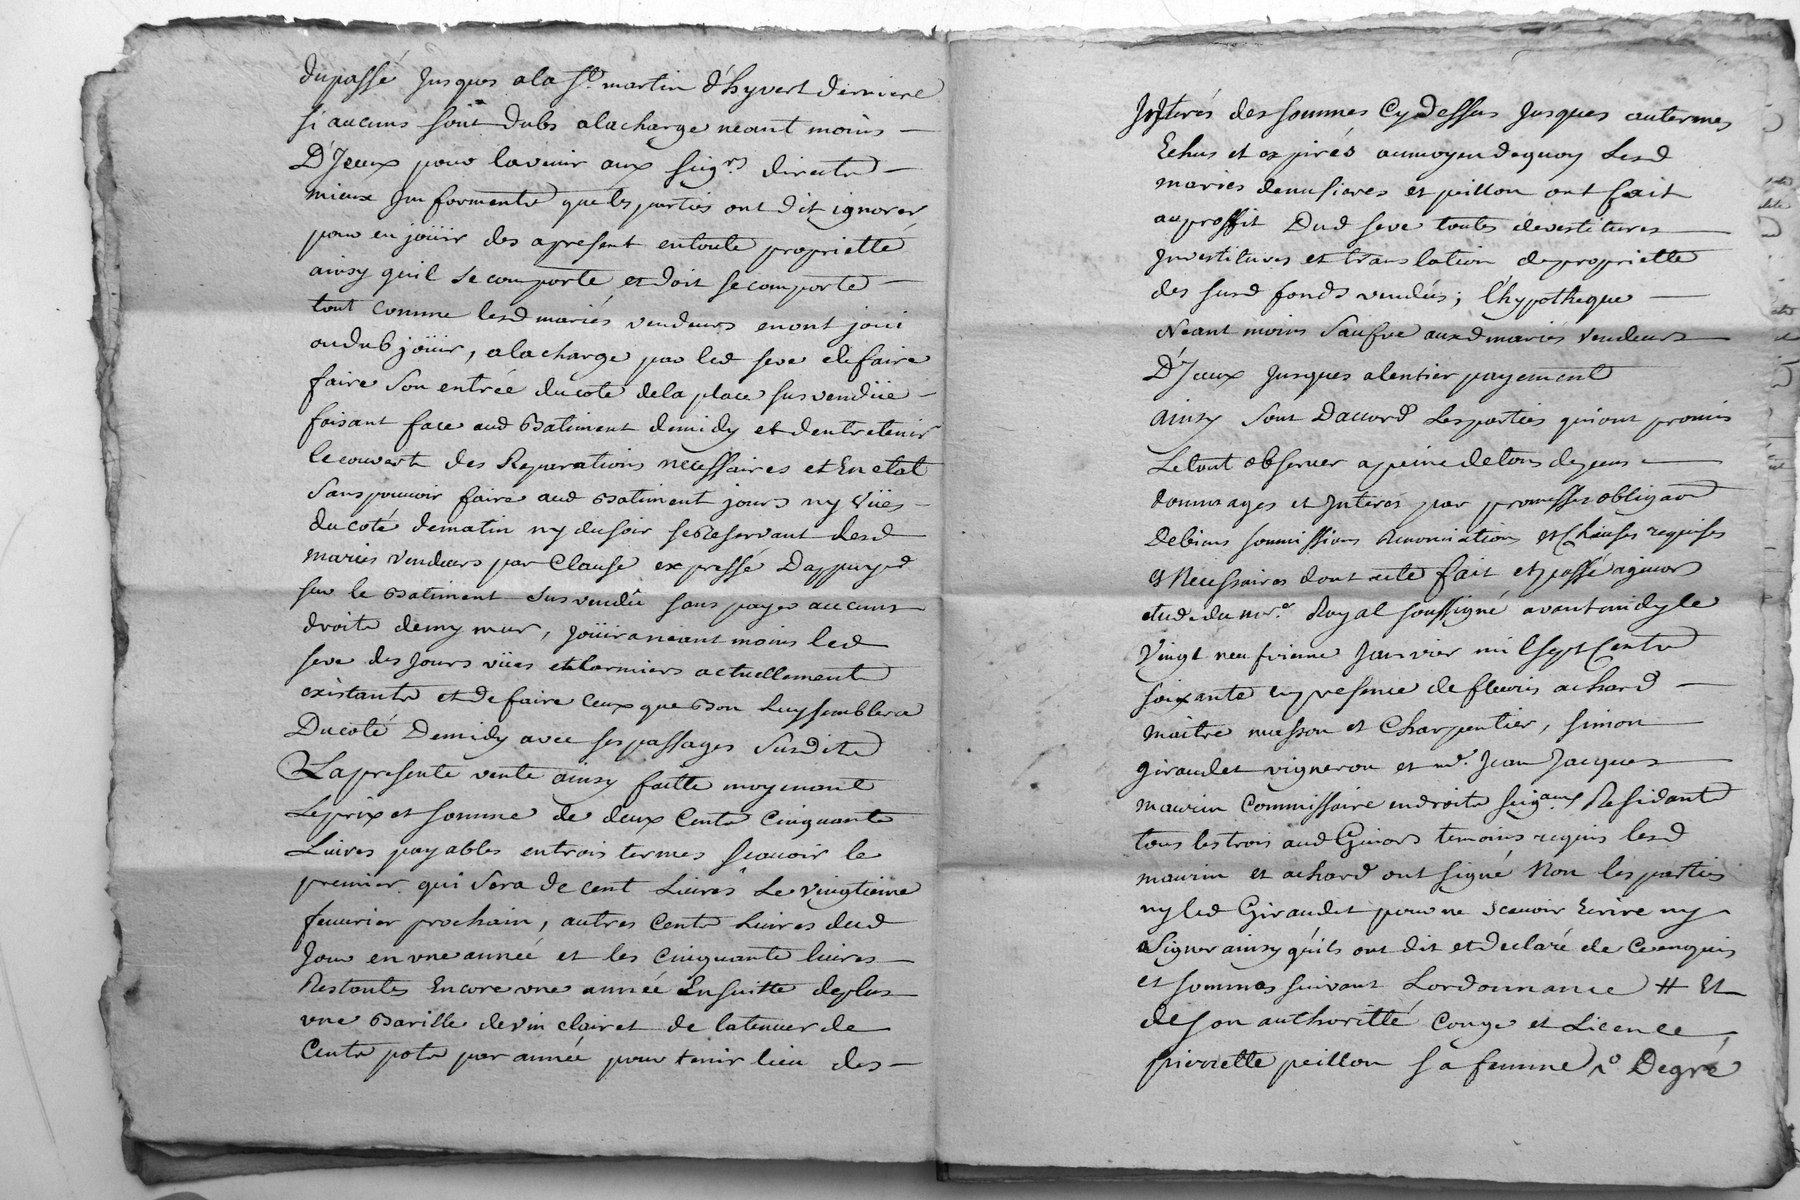 du passé Jusques a la St. martin d'hyvert derniere
si aucuns sont dubs a la charge neant moins
D'Jceux pour lavenir aux seigrs. directs
mieux Jnformente que les parties ont dit ignorer
pour en joüir des apresent en toute proprietté
ainsy quil se comporte et doit se comporte
tout comme lesd mariés vendeurs en ont joui
ou dub joüir, a la charge par led seve de faire
faire son entrée du cote de la place sus vendüe
faisant face aud Batiment de midy et dentretenir
le couvert des Reparations necessaires et En etat
sans pouvoir faire aud Batiment jours ny vües
du coté de matin ny du soir se Reservant lesd
mariés vendeurs par Clause expressé Dappuyed
sur le Batiment sus vendû sans payer aucuns
droits de my mur, joüira neant moins led
seve des Jours vües et larmiers actuellement
existants et de faire ceux que Bon luy semblera
Du coté Demidy avec ses passages susdits
La presente vente ainsy faitte moyenant
Le prix et somme de deux Cents Cinquante
Livres payables en trois termes scavoir le
premier qui sera de cent Livres Le vingtieme
fevrier prochain, autres Cents Livres dud
Jour en vne année et les Cinquante livres
Restantes Encore vne année Ensuitte de plus
vne Barille de vin clairet de la tenuer de
Cents pots par année pour tenir lieu des
Jnterés des sommes Cy Dessus Jusques au termes
Echus et expirés au moyen dequoy Lesd
mariés et peillon ont fait
au proffit Dud seve toutes devestitures
Jnvestitures et translation de proprietté
des susd fonds vendûs; l'hypotheque
Neant moins Saufve auxd mariés vendeurs
D'Jceux Jusques a lentier payement
Ainsy sont Daccord Les parties qui ont promis
Le tout observer a peine de tous depens
dommages et Jnterés par promesses obligaôn
De biens soumissions Renonciations et Clauses requises
et Necessaires dont acte fait et passé a givors
etude du nore. Royal soussigné avant midy le
Vingt neufvieme Janvier mil sept Cents
soixante en presence de fleuris achard
maitre masson et Charpentier, simon
giraudet vigneron et mr. Jean Jacques
maurin Commissaire en droits seigaux Residants
tous les trois aud Givors temoins requis lesd
maurin et achard ont signé Non les parties
ny led Giraudet pour ne scavoir Ecrire ny
signer ainsy qu'ils ont dit et declaré de ce enquis
et sommés suivant Lordonnance # Et
de son authoritté Conge et Licence,
pierrette peillon sa femme Degré